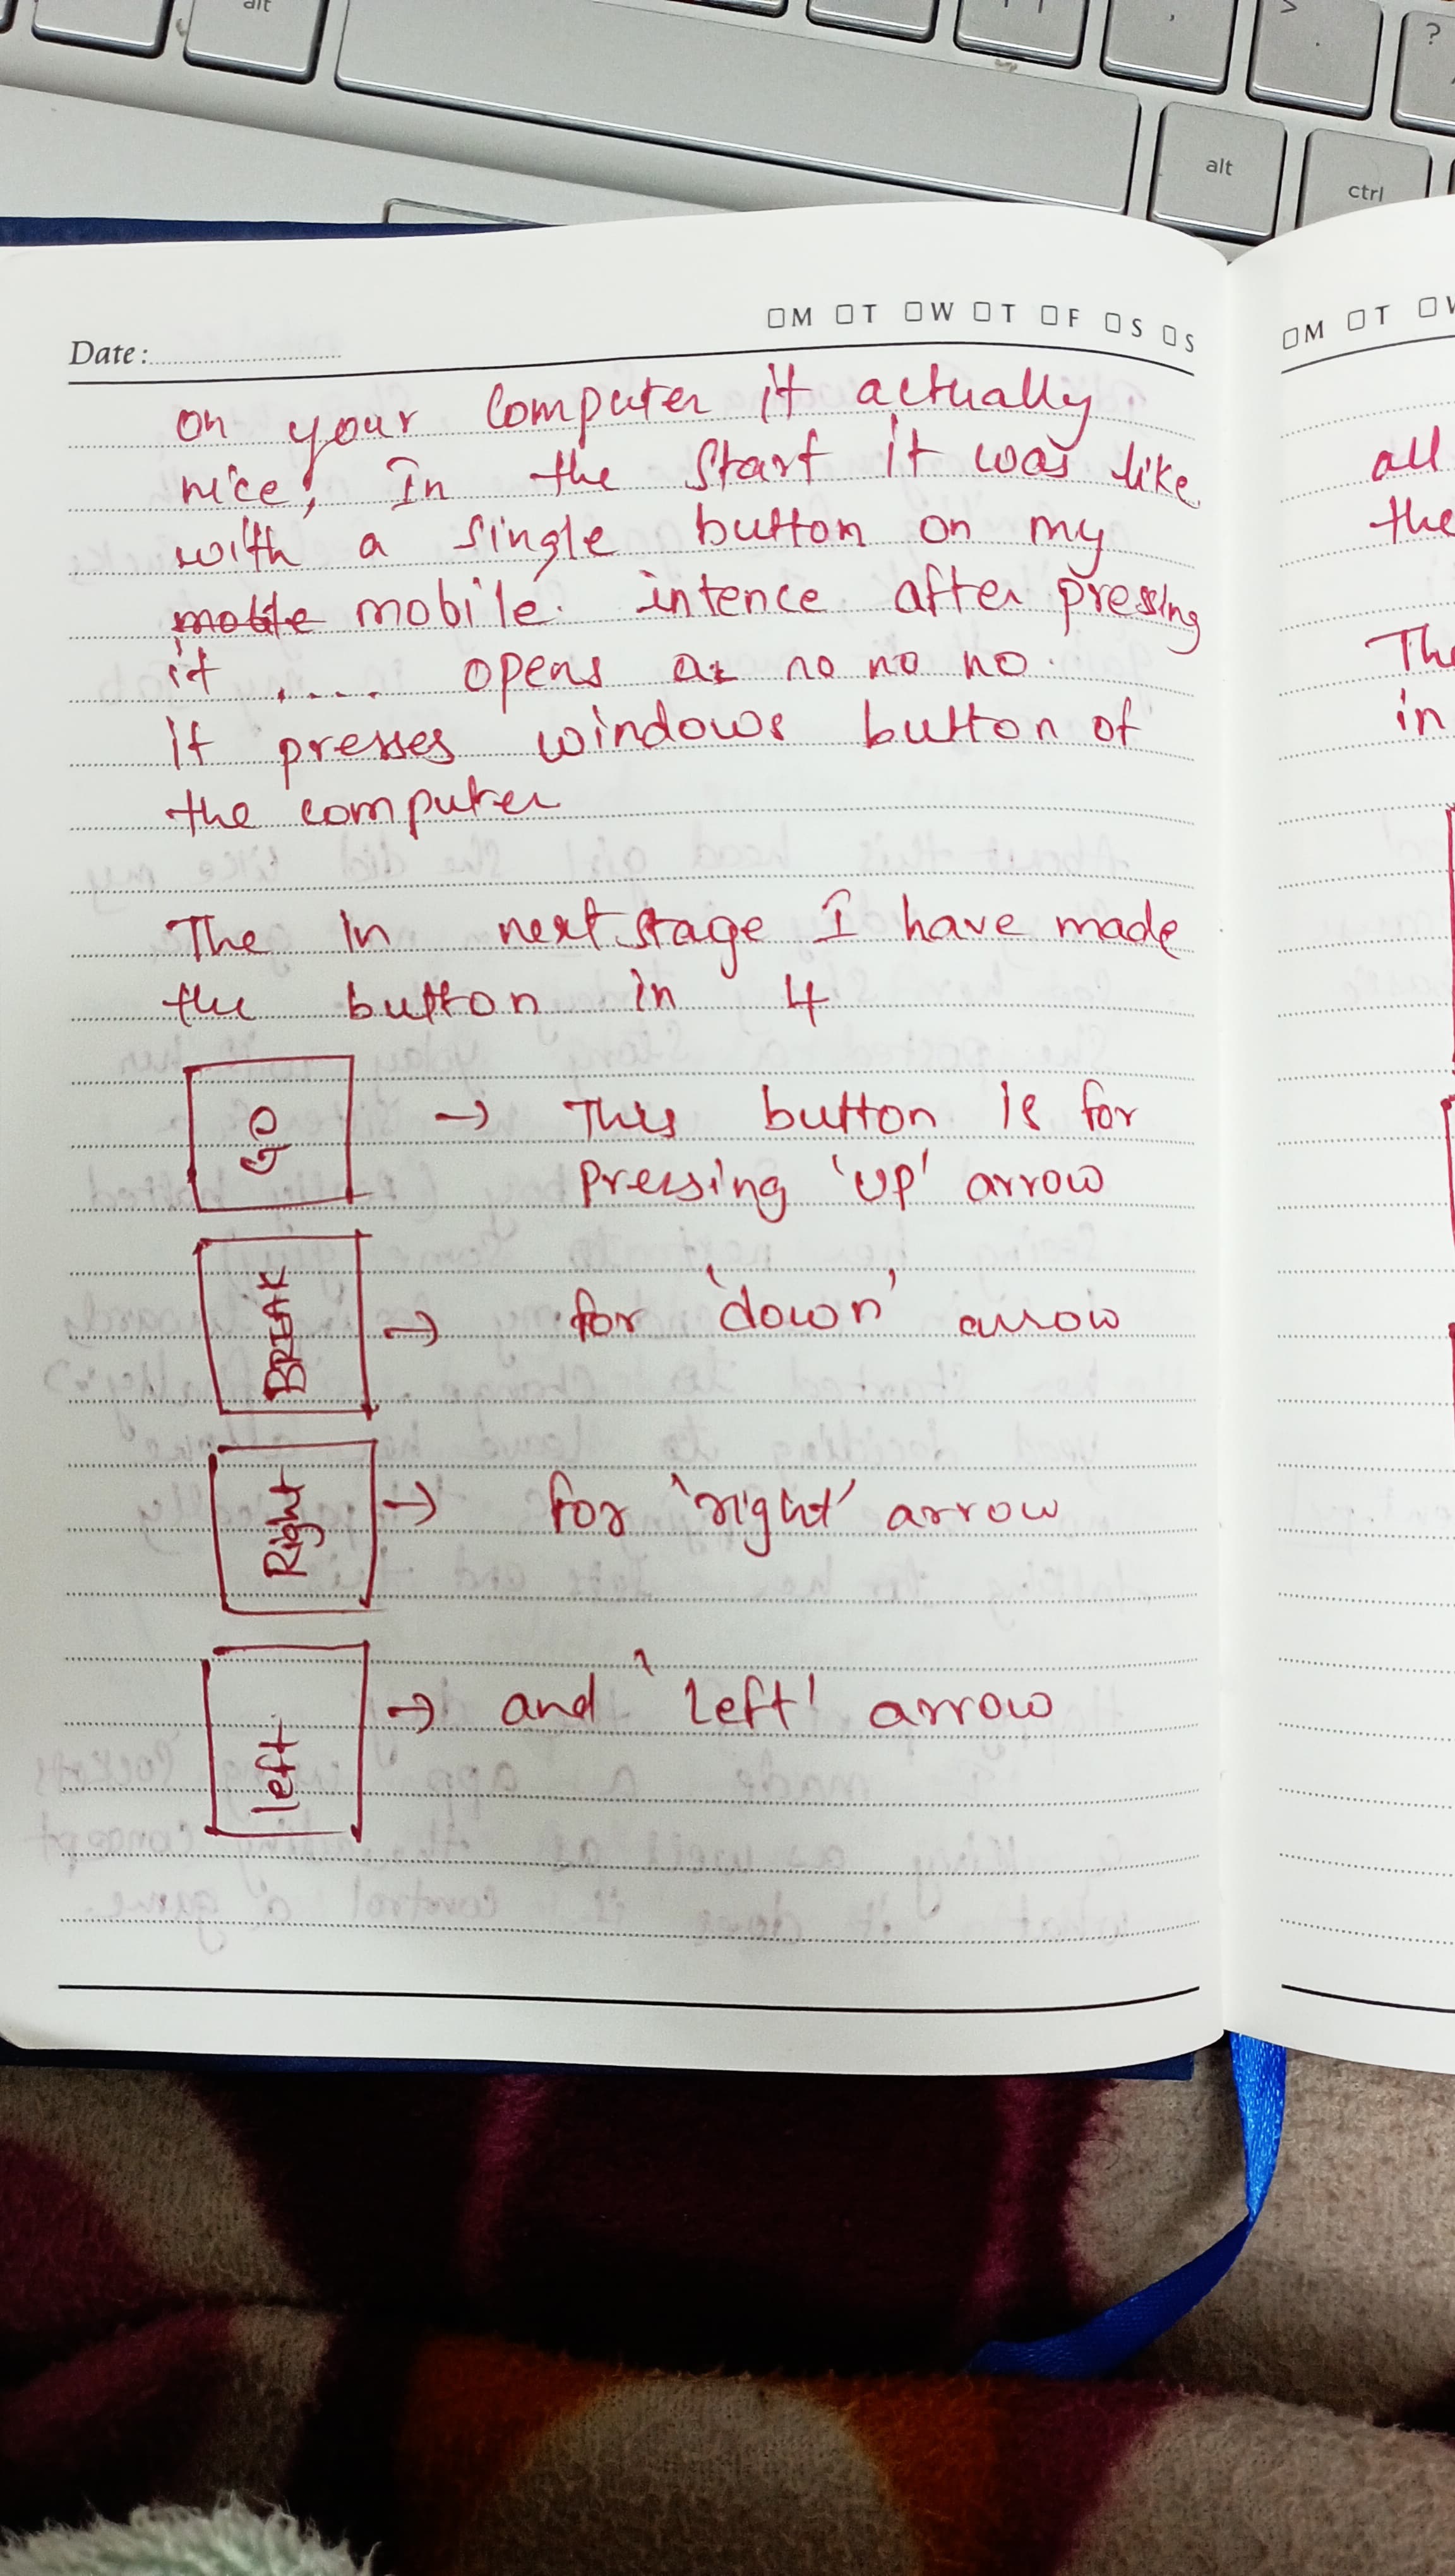 alt
alt
ctrl
, > . ?
Date: M T W T F S S
on your computer it actually
nice, In the start it was like
with a single button on my
moble mobile. intence after pressing
it .... opens a no no no.
it presses windows button of
the computer
The in next stage I have made
the button in 4
GO → This button is for
pressing 'up' arrow
BREAK → for 'down' arrow
Right → for 'right' arrow
left → and 'left' arrow
M T
all
the
in